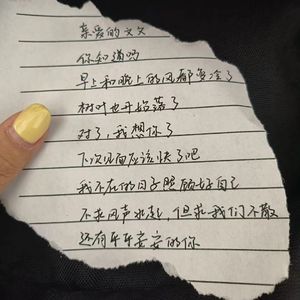 亲爱的文文
你知道吗
早上和晚上的风都变冷了
树叶也开始落了
对了，我想你了
下次见面应该快了吧
我不在的日子照顾好自己
不求风声水起，但求我们不散
还有平平安安的你